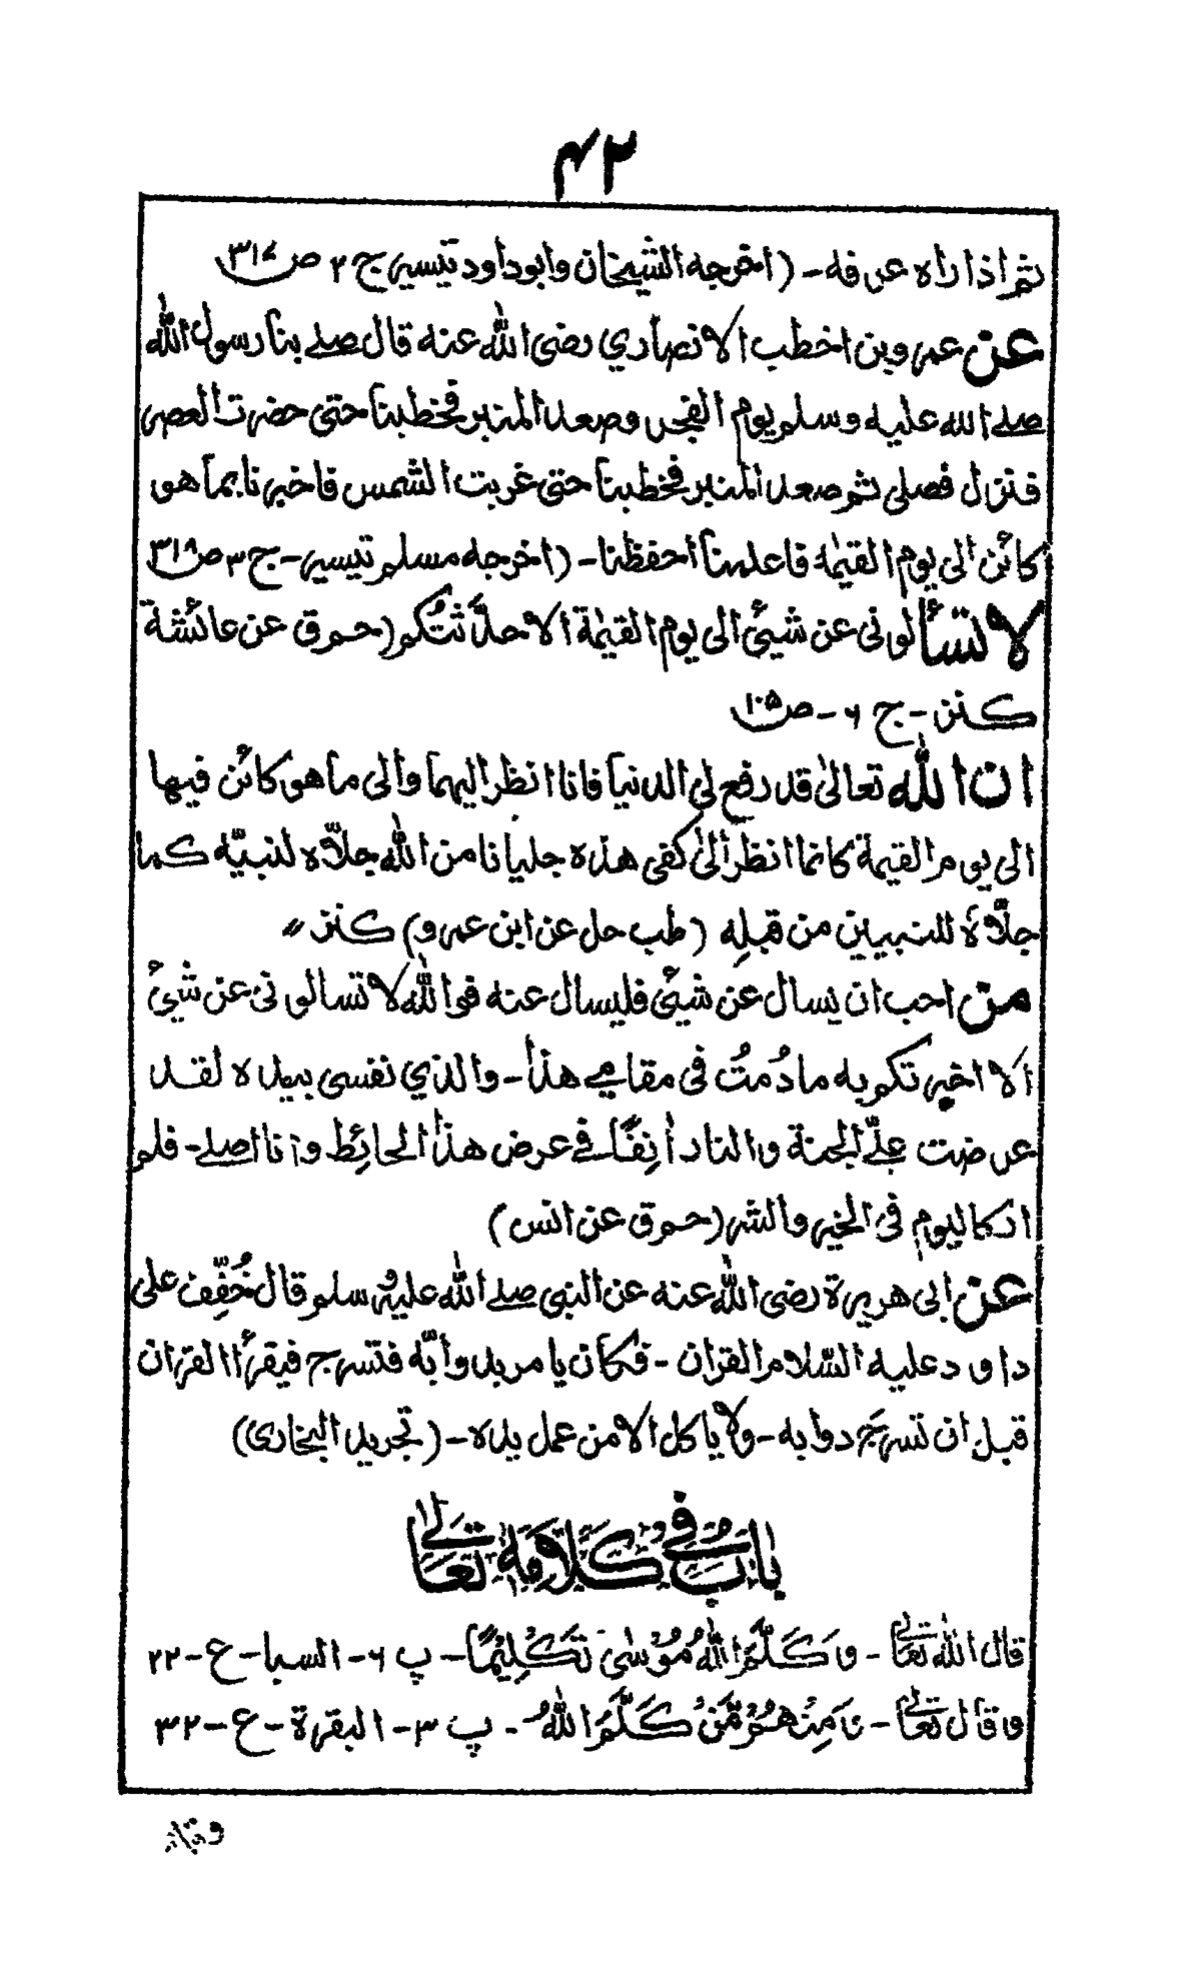 ۴۲
ثم اذا راه عرفه - (اخرجه الشيخان وابوداود تيسير ج ۳ ص ۳۱۷
عن عمرو بن اخطب الانصاري رضى الله عنه قال صلے بنا رسول الله
صلے الله عليه وسلم يوم الفجر وصعد المنبر فخطبنا حتى حضرت العصر
فنزل فصلى ثم صعد المنبر فخطبنا حتى غربت الشمس فاخبرنا بما هو
كائن الى يوم القيٰمة فاعلمنا احفظنا - (اخرجه مسلم تيسير - ج ۳ ص ۳۱۸
لا تسألونى عن شيئ الى يوم القيٰمة الا حدَّثتُكم (حم ق عن عائشة
كنز - ج ۶ - ص ۱۰۵
ان الله تعالىٰ قد رفع لى الدنيا فانا انظر اليها والى ما هو كائن فيها
الى يوم القيمة كانما انظر الىٰ كفى هذه جليانا من الله جلّاه لنبيّه كما
جلّاهٗ للنبيين من قبلِه (طب حل عن ابن عمرو) كنز ״
من احب ان يسال عن شيئ فليسال عنه فوالله لا تسالونى عن شيئ
الا اخبرتكم به ما دُمتُ فى مقامے هذا - والذي نفسى بيده لقد
عرضت علیّ الجنة والنار اٰنِفًا فے عرض هذا الحائِط وانا اصلے - فلم
ار كاليوم فى الخير والشر (حم ق عن انس)
عن ابى هريرة رضى الله عنه عن النبى صلے الله عليه وسلم قال خُفِّف على
داود عليه السّلام القران - فكان يامر بدوابّه فتسرج فيقرأ القران
قبل ان تسرج دوابه - ولا ياكل الا من عمل يده - (تجريد البخارى)
بابٌ فى كلامه تعالىٰ
قال الله تعالىٰ - وَكَلَّمَ اللهُ مُوْسٰى تَكْلِيْمًا - پ ۶ - النسا - ع - ۲۲
وقال تعالىٰ - مِنْهُمْ مَّنْ كَلَّمَ اللهُ - پ ۳ - البقرة - ع - ۳۲